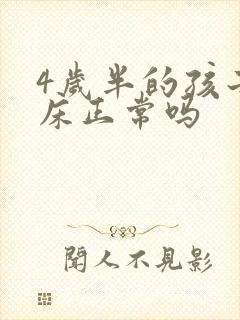 4歲半的孩子
床正常吗
閒人不見影